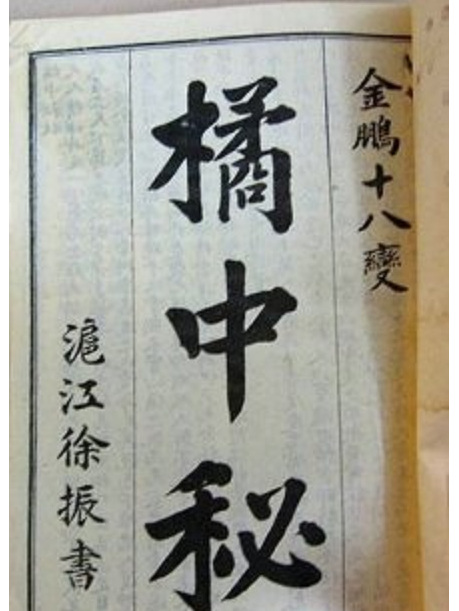 金鵬十八變
橘中秘
滬江徐振書